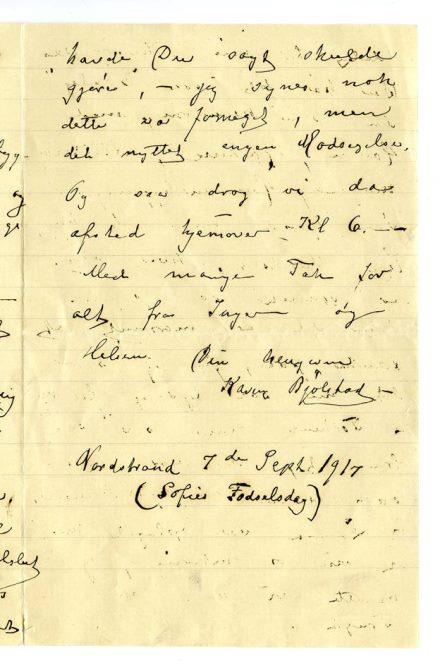 havde Du sagt skulde
"gjøres", – jeg synes nok
dette var formeget, men
det nyttet ingen Modsigelse.
Og saa drog vi da
afsted hjemover Kl 6. –
Med mange Tak for
alt, fra Inger og
Hilsen. Din hengivne
Karen Bjölstad –
Nordstrand 7 de Sept. 1917
(Sofies Fødselsdag.)